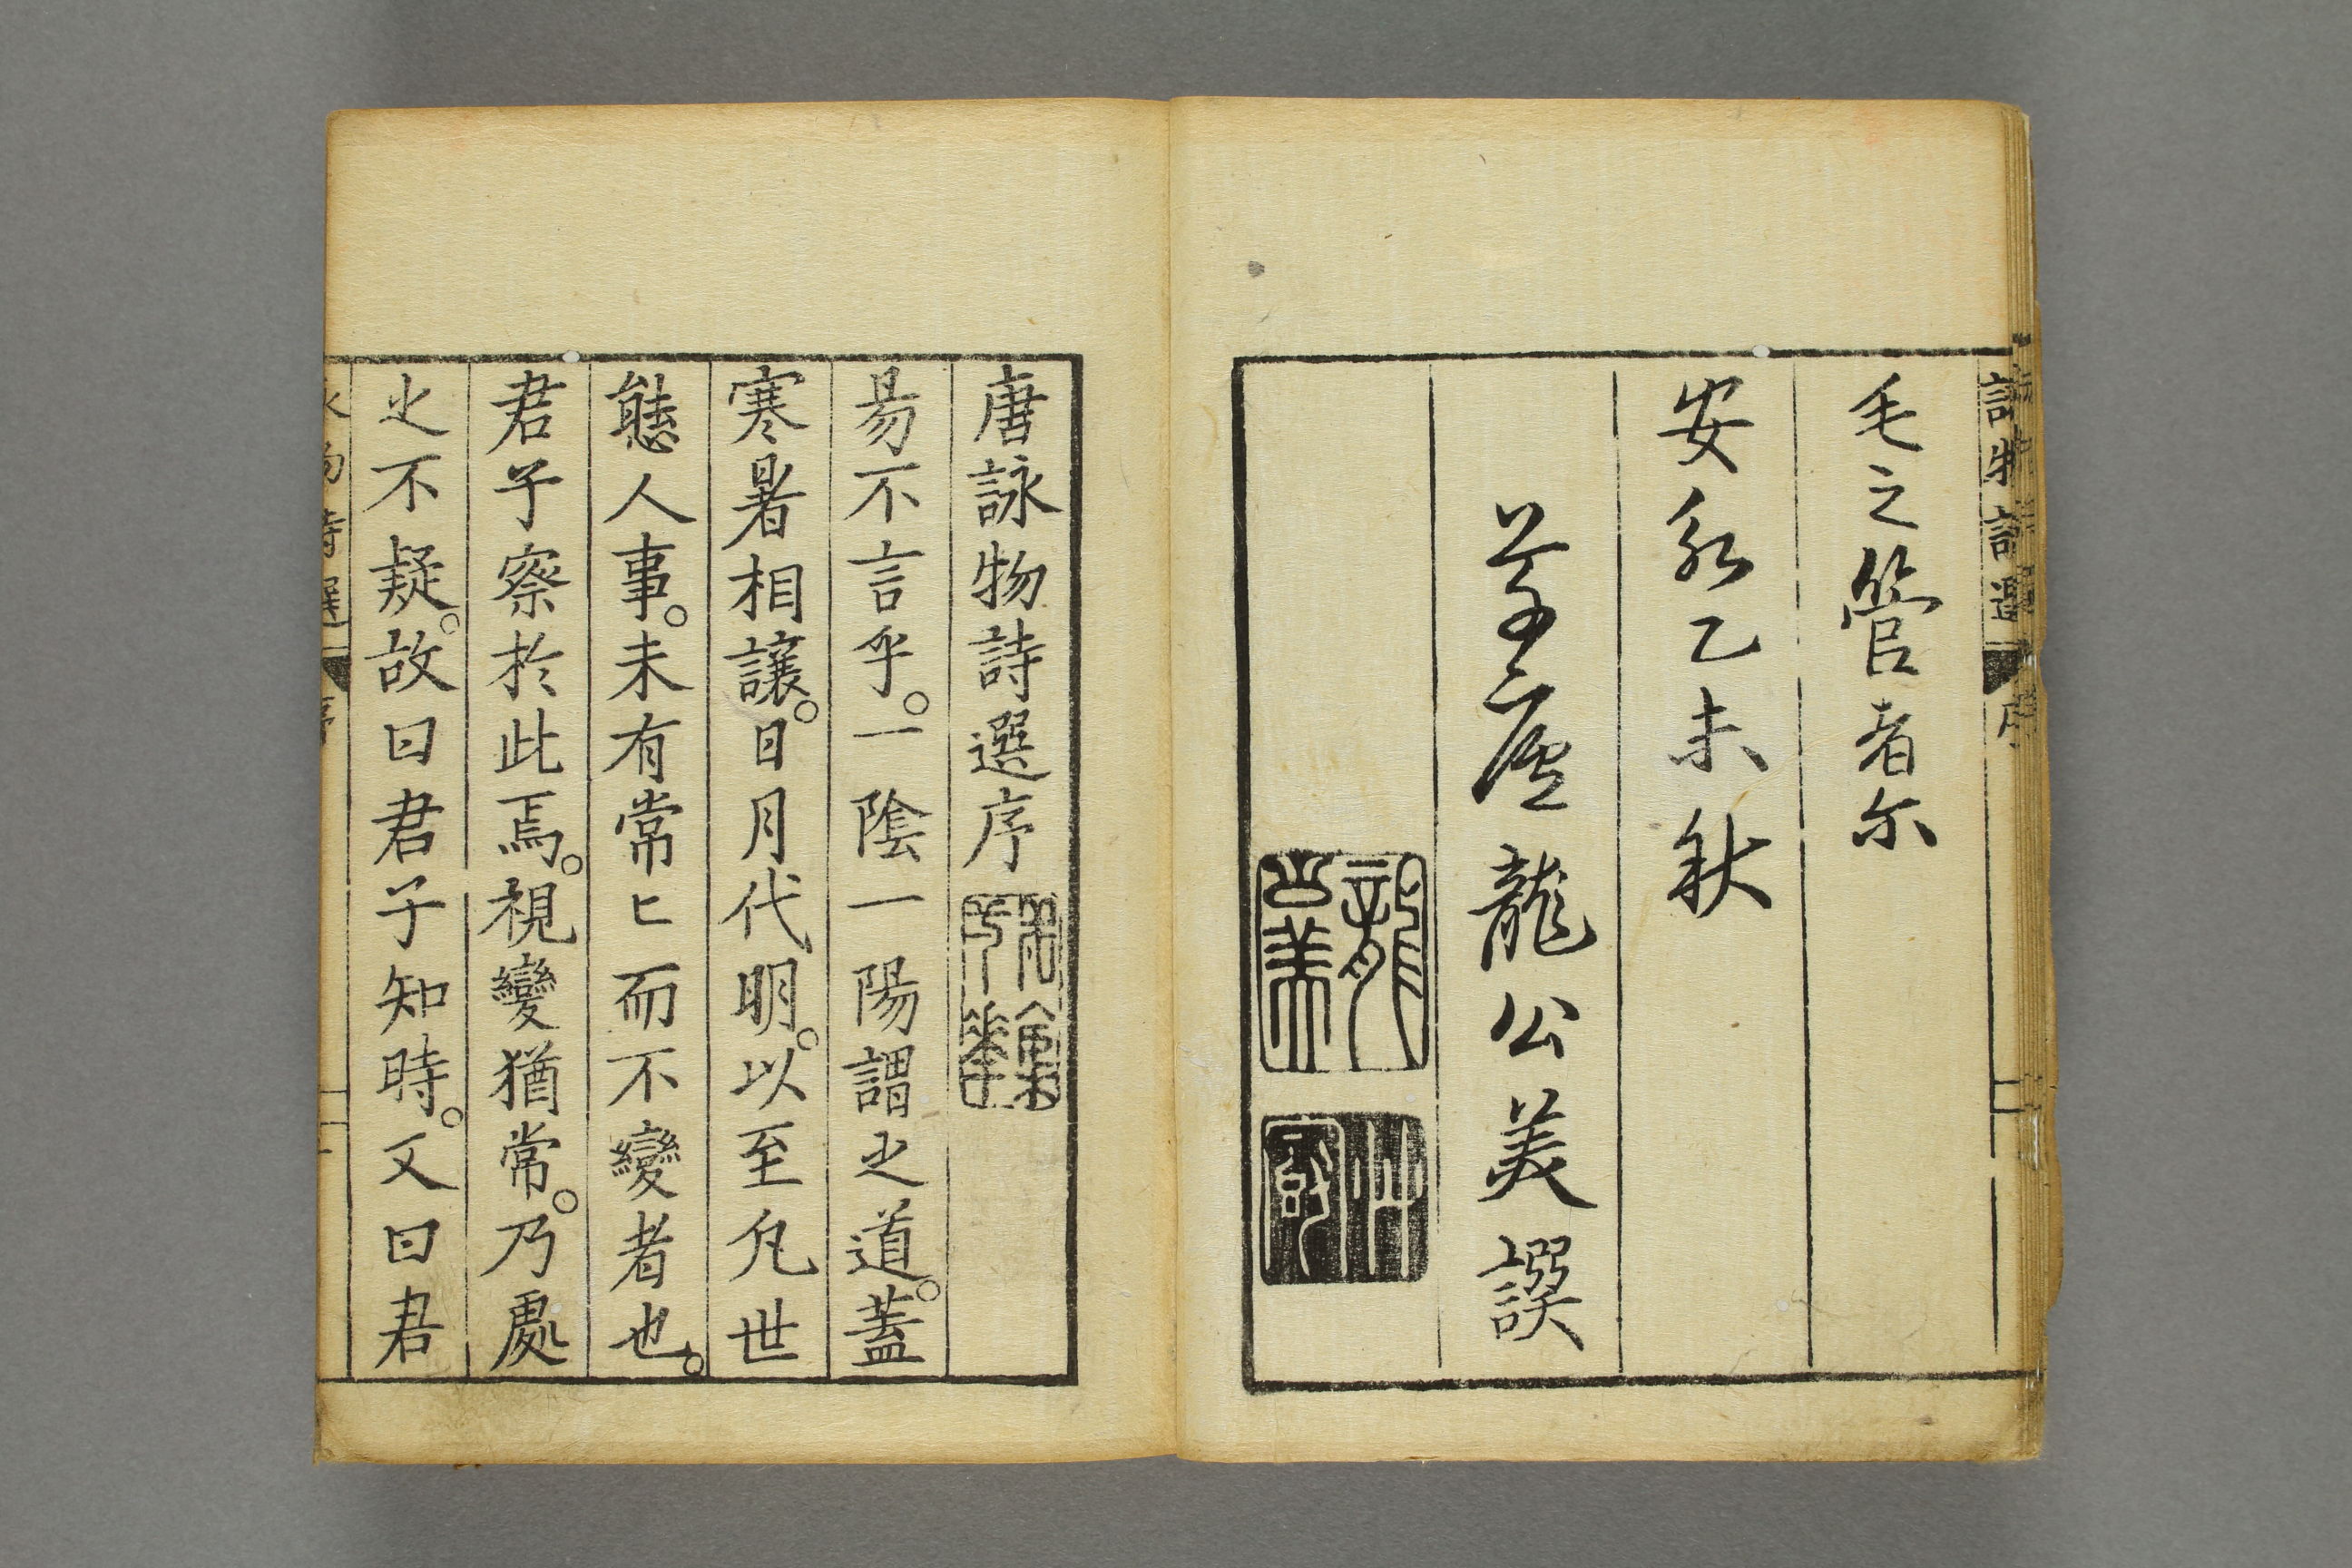 毛之管者尓
安永乙未秋
草廬龍公美譔
龍公美
唐詠物詩選序
易不言乎。一陰一陽謂之道。蓋
寒暑相讓。日月代明。以至凢世
態人事。未有常〻而不變者也。
君子察於此焉。視變猶常。乃處
之不疑。故曰君子知時。又曰君